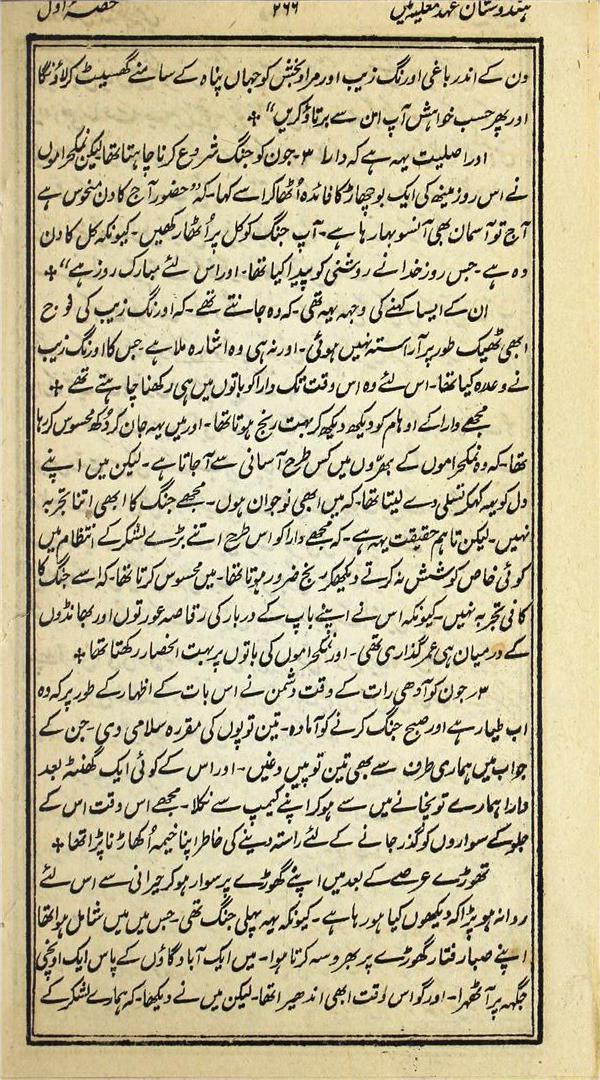 ہندوستان عہد مغلیہ میں ۲۶۶ حصہ اول
دن کے اندر باغی اورنگ زیب اور مراد بخش کو جہاں پناہ کے سامنے گھسیٹ کر لاؤنگا
اور پھر حسب خواہش آپ ان سے برتاؤ کریں“ ٭
اور اصلیت یہہ ہے کہ دارا ۳۔جون کو جنگ شروع کرنا چاہتا تھا لیکن نمکحراموں
نے اس روز مینھ کی ایک بوچھاڑ کا فائدہ اُٹھا کر اسے کہا۔کہ ”حضور آج کا دن منحوس ہے
آج تو آسمان بھی آنسو بہا رہا ہے۔آپ جنگ کو کل پر اُٹھا رکھیں۔کیونکہ کل کا دن
وہ ہے۔جس روز خدا نے روشنی کو پیدا کیا تھا۔اور اس لئے مبارک روز ہے“ ٭
ان کے ایسا کہنے کی وجہہ یہہ تھی۔کہ وہ جانتے تھے۔کہ اورنگ زیب کی فوج
ابھی ٹھیک طور پر آراستہ نہیں ہوئی۔اور نہ ہی وہ اشارہ ملا ہے۔جس کا اورنگ زیب
نے وعدہ کیا تھا۔اس لئے وہ اس وقت تک دارا کو باتوں میں ہی رکھنا چاہتے تھے ٭
مجھے دارا کے اوہام کو دیکھ دیکھ کر بہت رنج ہوتا تھا۔اور میں یہہ جان کر دُکھ محسوس کر رہا
تھا۔کہ وہ نمکحراموں کے بھرّوں میں کس طرح آسانی سے آجاتا ہے۔لیکن میں اپنے
دل کو یہہ کہکر تسلی دے لیتا تھا۔کہ میں ابھی نوجوان ہوں۔مجھے جنگ کا ابھی اتنا تجربہ
نہیں۔لیکن تاہم حقیقت یہہ ہے۔کہ مجھے دارا کو اس طرح اتنے بڑے لشکر کے انتظام میں
کوئی خاص کوشش نہ کرتے دیکھکر رنج ضرور ہوتا تھا۔میں محسوس کرتا تھا۔کہ اسے جنگ کا
کافی تجربہ نہیں۔کیونکہ اس نے اپنے باپ کے دربار کی رقاصہ عورتوں اور بھانڈوں
کے درمیان ہی عمر گذاری تھی۔اور نمکحراموں کی باتوں پر بہت انحصار رکھتا تھا ٭
۳؍ جون کو آدھی رات کے وقت دشمن نے اس بات کے اظہار کے طور پر کہ وہ
اب طیار ہے اور صبح جنگ کرنے کو آمادہ۔تین توپوں کی مقررہ سلامی دی۔جن کے
جواب میں ہماری طرف سے بھی تین توپیں دغیں۔اور اس کے کوئی ایک گھنٹہ بعد
دارا ہمارے توپخانے میں سے ہو کر اپنے کیمپ سے نکلا۔مجھے اس وقت اس کے
جلو کے سواروں کو گذر جانے کے لئے راستہ دینے کی خاطر اپنا خیمہ اُکھاڑنا پڑا تھا ٭
تھوڑے عرصے کے بعد میں اپنے گھوڑے پر سوار ہو کر حیرانی سے اس لئے
روانہ ہو پڑا کہ دیکھوں کیا ہو رہا ہے۔کیونکہ یہہ پہلی جنگ تھی۔جس میں میں شامل ہوا تھا
اپنے صبا رفتار گھوڑے پر بھروسہ کرتا ہوا۔میں ایک آباد گاؤں کے پاس ایک اونچی
جگہہ پر آ ٹھہرا۔اور گو اس وقت ابھی اندھیرا تھا۔لیکن میں نے دیکھا۔کہ ہمارے لشکر کے